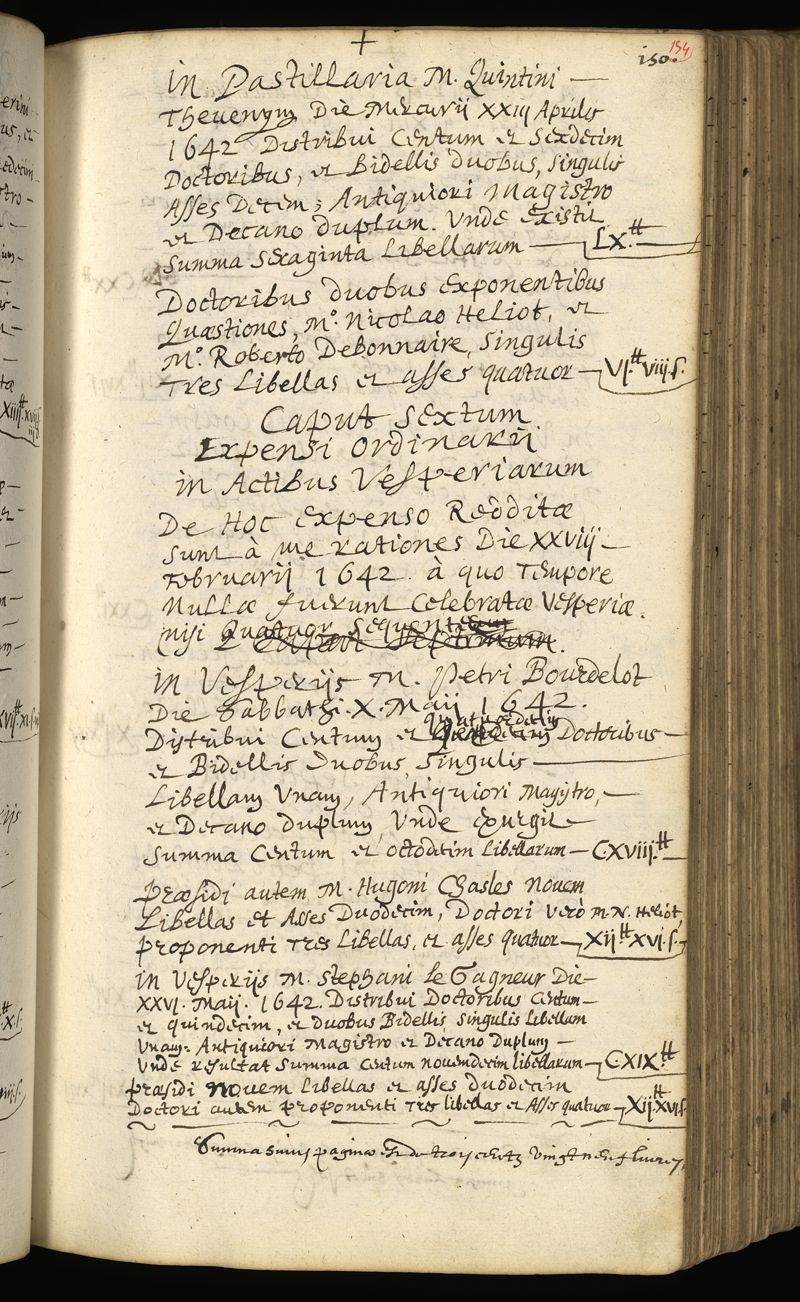 +
150. 154
in Pastillaria M. Quintini —
Thevenyn Die Mercurii XXIIJ Aprilis
1642 Distribui Centum et Sexdecim
Doctoribus, et Bidellis duobus, singulis
Asses Decem; Antiquiori Magistro
et Decano duplum. Unde existit
Summa sexaginta Libellarum — LX.tt
Doctoribus duobus exponentibus
Quæstiones, M.º Nicolao Heliot, et
M.º Roberto Debonnaire, singulis
Tres Libellas et asses quatuor — VI.tt VIII.s.
Caput sextum
Expensi ordinarij
in Actibus Vesperiarum
De Hoc expenso Redditæ
sunt à me rationes Die XXVIIJ —
Februarij 1642. à quo tempore
Nullæ fuerunt Celebratæ Vesperiæ.
nisi Quatuor sequentes
in Vesperijs M. Petri Bourdelot
Die Sabbathi. X. Maij 1642.
Distribui Centum et quatuordecim Doctoribus —
et Bidellis duobus singulis —
Libellam Unam, Antiquiori Magistro, —
et Decano duplum, Unde exurgit —
Summa Centum et octodecim Libellarum — CXVIII.tt
Præsidi autem M. Hugoni Chasles novem
Libellas et Asses Duodecim, Doctori Verò M. N. Heliot,
proponenti Tres Libellas, et asses quatuor — XIJ.tt XVI.s.
in Vesperijs M. Stephani le Gagneur Die —
XXVI. Maij. 1642. Distribui Doctoribus Centum —
et quindecim, et duobus Bidellis singulis Libellam
Unam. Antiquiori Magistro et Decano Duplum —
Unde resultat Summa Centum novemdecim libellarum — CXIX.tt
præsidi novem Libellas et asses duodecim
Doctori autem proponenti Tres libellas et Asses quatuor — XIJ.tt XVI.s.
Summa huius paginæ est de trois centz vingt neuf livres,